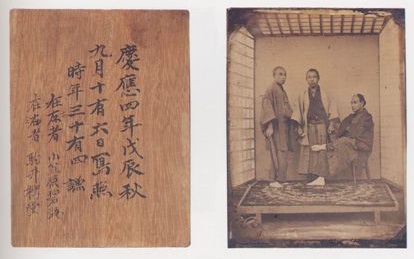 慶應四年戊辰秋
九月十有六日寫照
時年三十有四
在左者 小
在右者 駒井